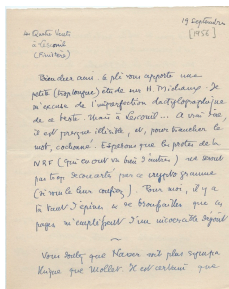 19 Septembre
Les Quatre Vents [1956]
à Lesconil
(Finistère)
Bien cher ami. Ce pli vous apporte une
petite (trop longue) étude sur H. Michaux. Je
m'excuse de l'imperfection dactylographique
de ce texte. Mais à Lesconil... A vrai dire
il est presque illisible, et, pour trancher le
mot, cochonné. Espérons que les protes de la
NRF (qui en ont vu bien d'autres) ne seront
pas trop déconcertés par ce cryptogramme
(si vous le leur confiez). Pour moi, il y a
tant d'épines
pages m'emplissent d'un
~
Vous savez que Navarre soit plus sympa
thique que Mollat. Il est certain que